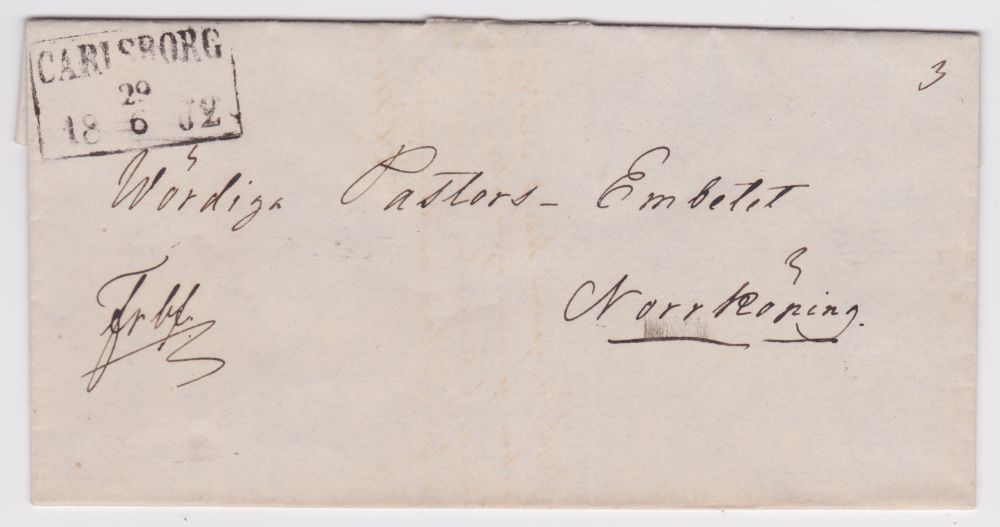 CARLSBORG
29
18 6 62
3
Wördiga Pastors-Embetet
Norrköping.
Frbf.